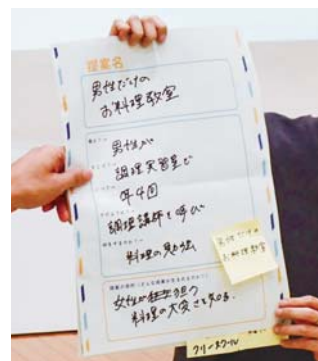 提案名
男性だけの
お料理教室
男性が
調理実習室で
年4回
調理講師を呼び
料理の勉強
男性だけの
お料理教室
料理の大変さを知る。
フリースクール